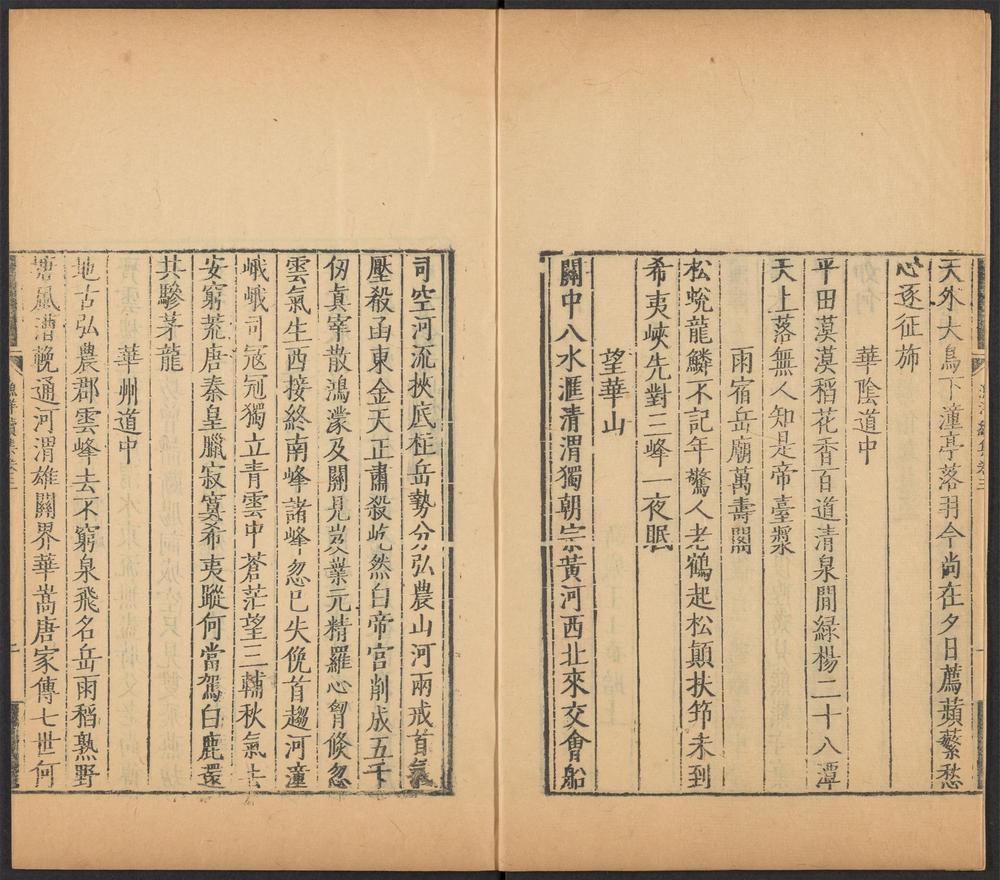 天外大鳥下潼亭落月今尚在夕日薦蘋蘩愁
心逐征斾
華陰道中
平田漠漠稻花香百道清泉間綠楊二十八潭
天上落無人知是帝臺漿
雨宿岳廟萬壽閣
松蛻龍鱗不記年驚人老鶴起松顛扶筇未到
希夷峽先對三峰一夜眠
望華山
關中八水滙清渭獨朝宗黃河西北來交會船
司空河流挾底柱岳勢分弘農山河兩戒首氣
壓殽函東金天正肅殺屹然白帝宮削成五千
仞眞宰散鴻濛及關見岌嶪元精羅心胷倐忽
雲氣生西接終南峰諸峰忽已失俛首趨河潼
峨峨司寇冠獨立青雲中蒼茫望三輔秋氣去
安窮荒唐秦皇臘寂寞希夷蹤何當駕白鹿還
共驂茅龍
華州道中
地古弘農郡雲峰去不窮泉飛名岳雨稻熟野
塘風漕輓通河渭雄關界華嵩唐家傳七世何